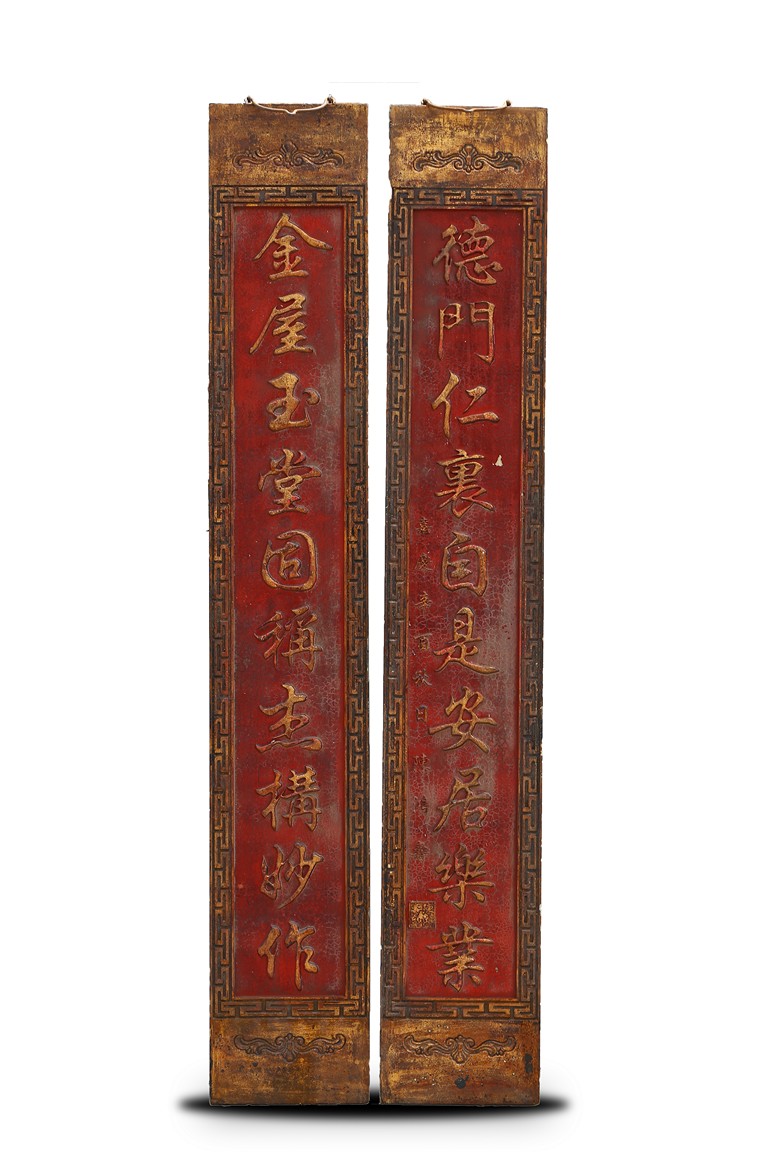 金屋玉堂固稱杰構妙作
德門仁裏自是安居樂業
嘉慶辛酉秋日陳